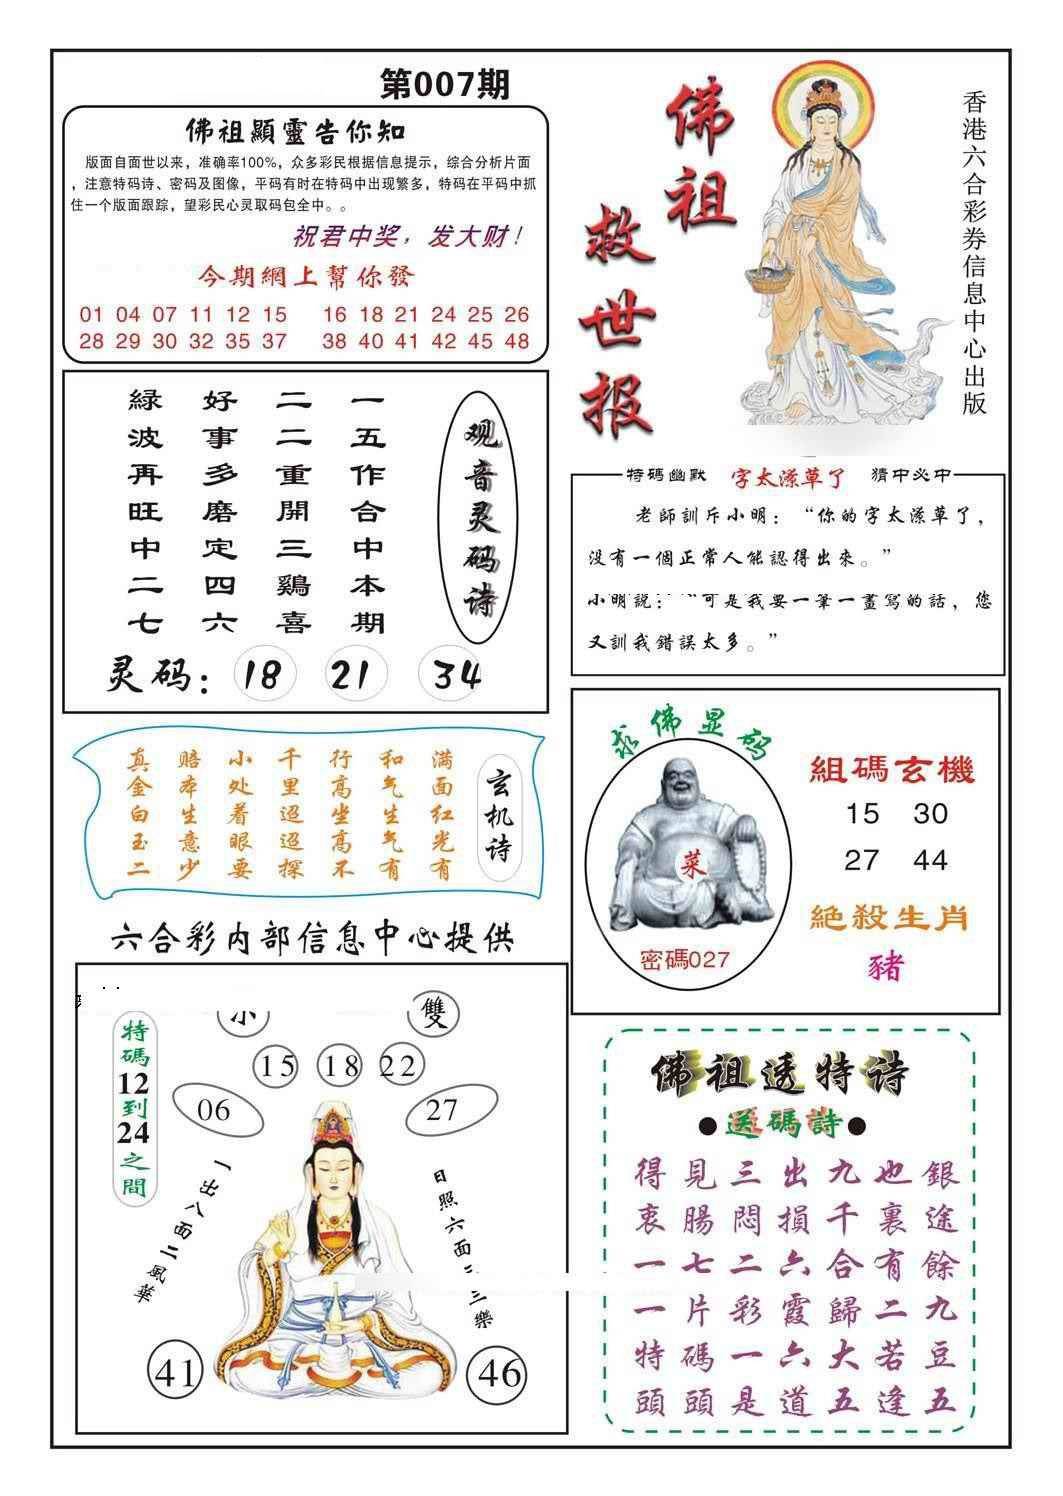 第007期
佛祖顯靈告你知
版面自面世以来，准确率100%，众多彩民根据信息提示，综合分析片面
，注意特码诗、密码及图像，平码有时在特码中出现繁多，特码在平码中抓
住一个版面跟踪，望彩民心灵取码包全中。。
祝君中奖，发大财！
今期網上幫你發
01 04 07 11 12 15 16 18 21 24 25 26
28 29 30 32 35 37 38 40 41 42 45 48
佛祖
救世报
香港六合彩券信息中心出版
观音灵码诗
一五作合中本期
二二重開三鷄喜
好事多磨定四六
緑波再旺中二七
灵码：18 21 34
特碼幽默 字太潦草了 猜中必中
老師訓斥小明：“你的字太潦草了，
没有一個正常人能認得出來。”
小明説：“可是我要一筆一畫寫的話，您
又訓我錯誤太多。”
玄机诗
满面红光有
和气生气有
行高坐高不
千里迢迢探
小处着眼要
赔本生意少
真金白玉二
求佛显码
菜
密碼027
組碼玄機
15 30
27 44
絕殺生肖
豬
六合彩内部信息中心提供
小
雙
特碼12到24之間
15 18 22
06 27
一出八面二風華
日照六面
三樂
41 46
佛祖透特诗
●送碼詩●
得見三出九也銀
衷腸悶損千裏途
一七二六合有餘
一片彩霞歸二九
特碼一六大若豆
頭頭是道五逢五